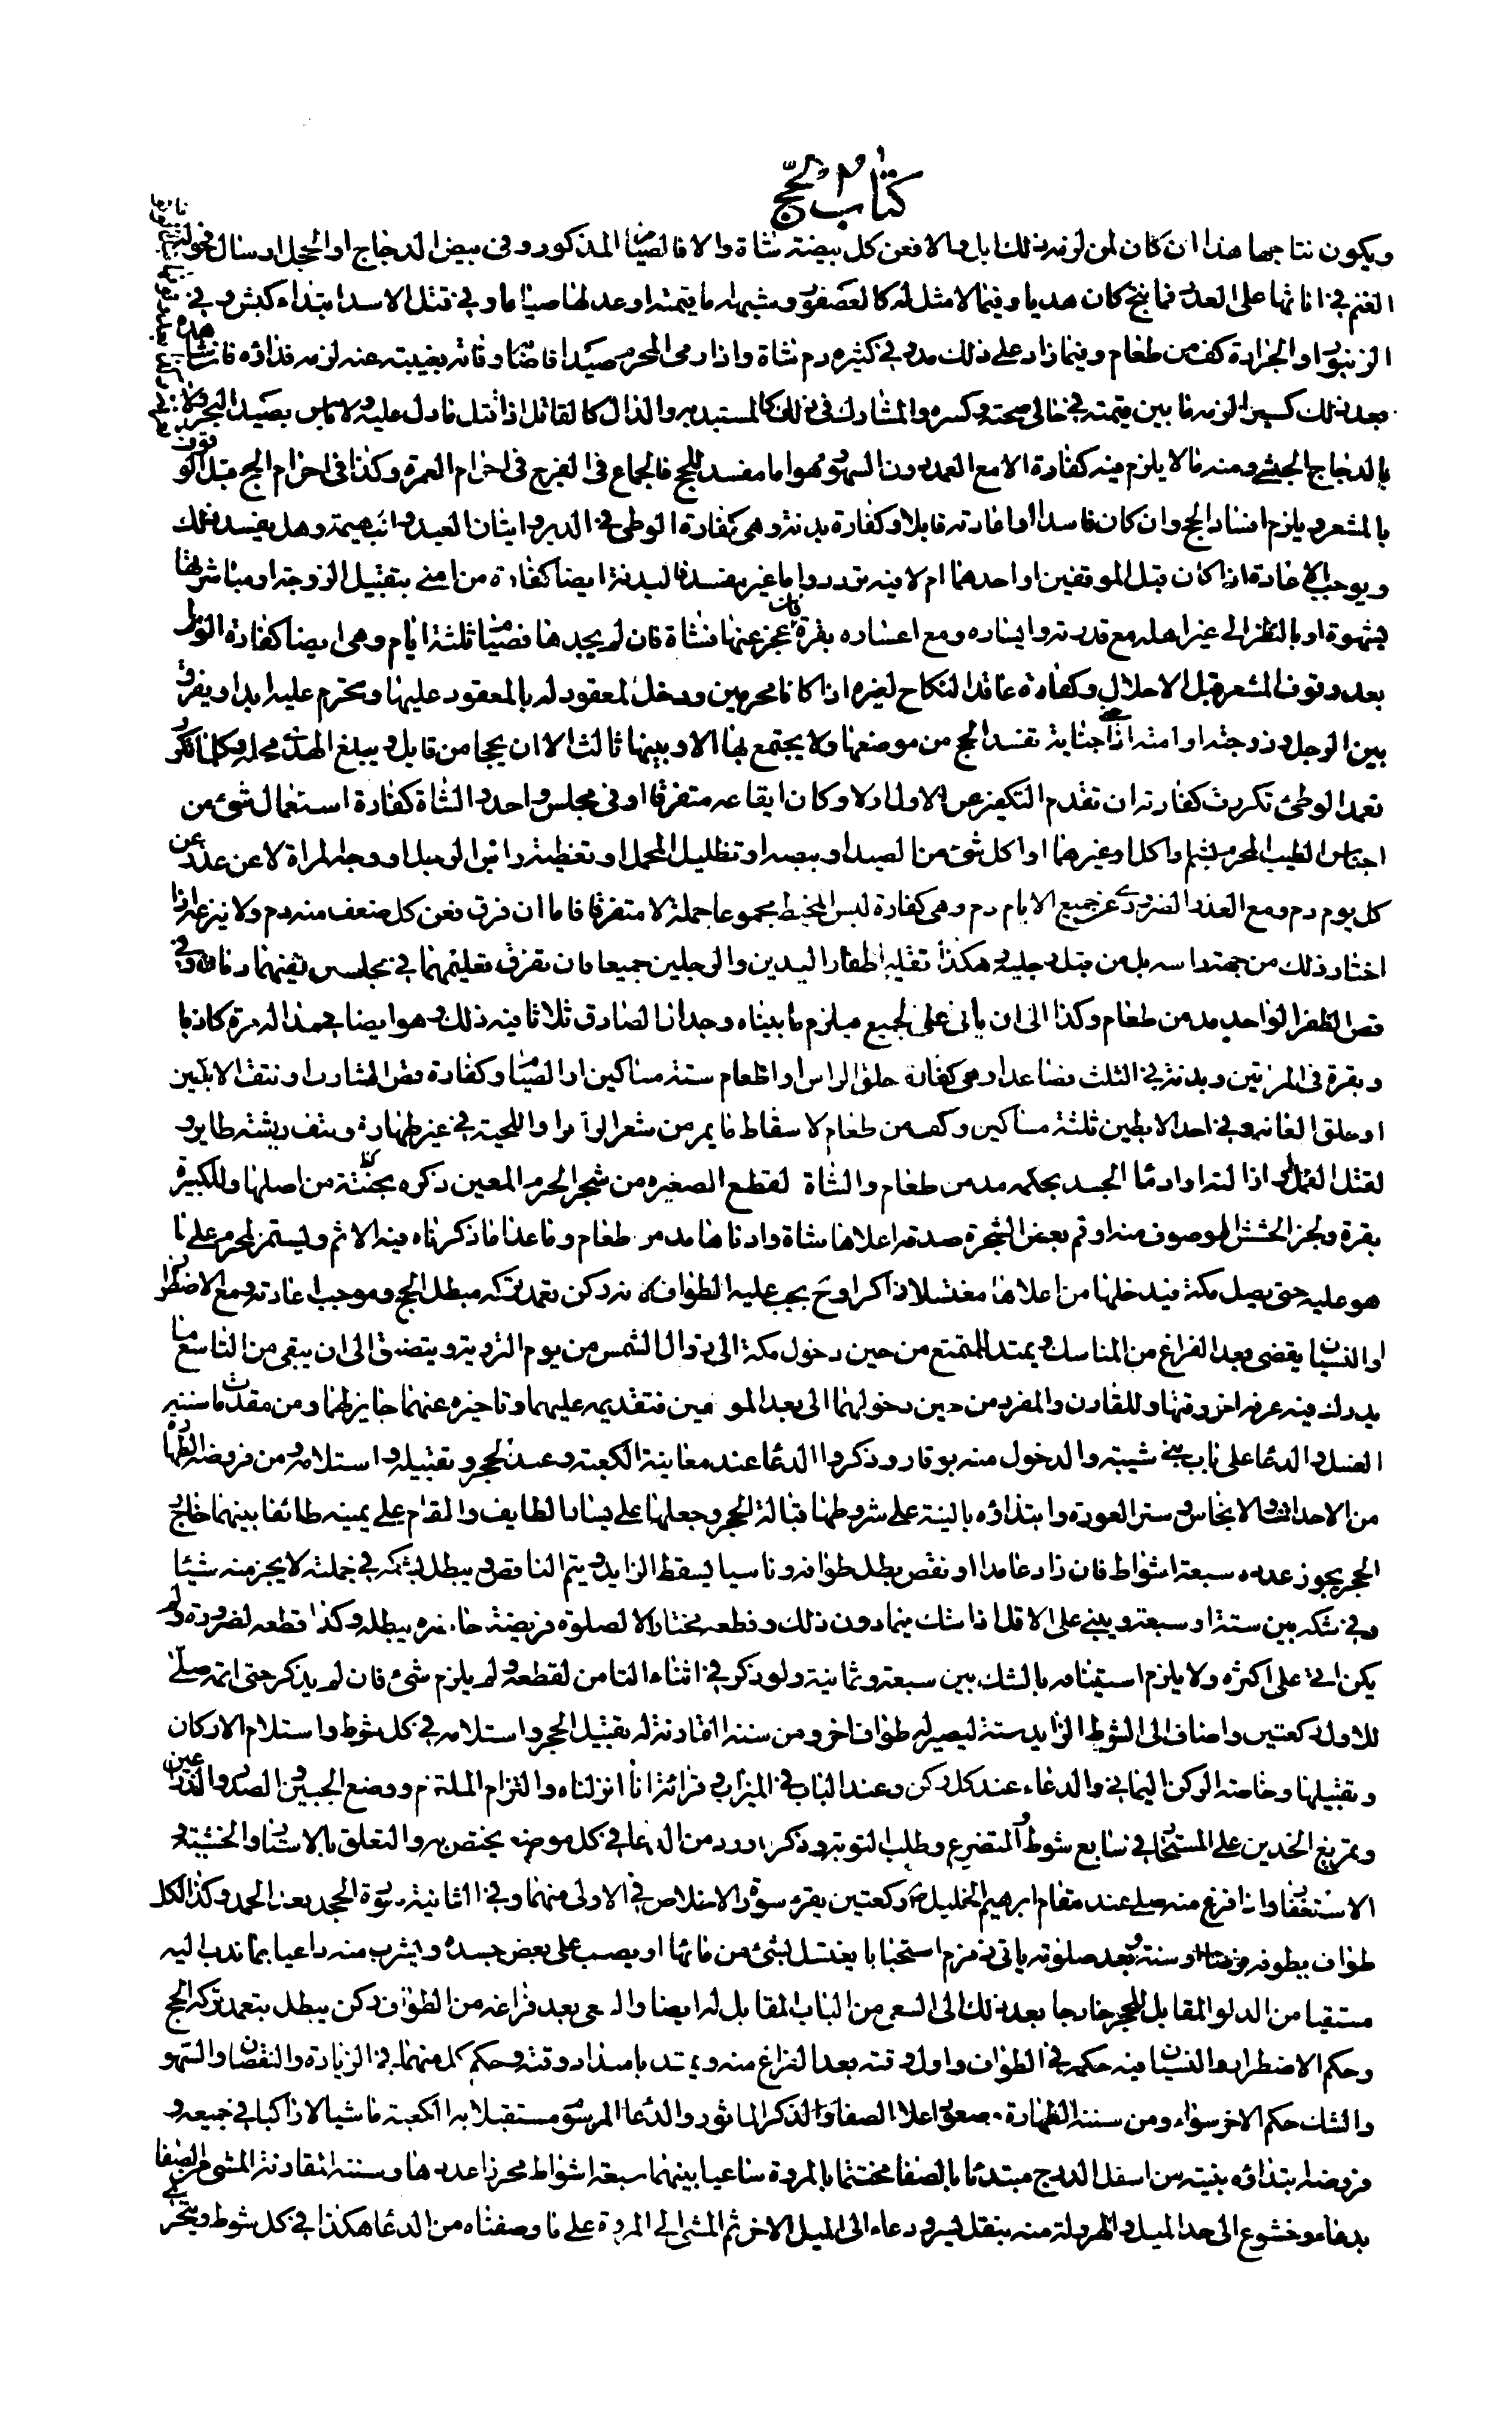 كتاب الحج
ويكون نتاجها هذا ان كان لمن لزمه ذلك ابل والا فعن كل بيضة شاة والا فالصيام المذكور وفي بيض الدجاج او الحجل ارسال فحولة
الغنم في اناثها على العدد فما نتج كان هديا وفيما لا مثل له كالعصفور وشبهه ما قيمته او عدلها صياما وفي قتل الاسد ابتداء كبش وفي
الزنبور او الجرادة كف من طعام وفيما زاد على ذلك مد وفي كثيره دم شاة واذا رمى المحرم صيدا فاصابه وفاته بغيبته عنه لزمه فداؤه فان شاهده
بعد ذلك كسيرا لزمه ما بين قيمته في حالي صحته وكسره والمشارك في ذلك كالمستبد به والدال كالقاتل اذا قتل ما دل عليه ولا باس بصيد البحر ولا
بالدجاج الحبشي ومنه ما لا يلزم فيه كفارة الا مع العمد دون السهو وهو اما مفسد للحج فالجماع في الفرج في احرام العمرة وكذا في احرام الحج قبل الوقوف
بالمشعر ويلزم افساد الحج وان كان فاسدا واعادته قابلا وكفارة بدنة وهي كفارة الوطي في الدبر واتيان العبد والبهيمة وهل يفسد ذلك
ويوجب الاعادة اذا كان قبل الموقفين او احدهما ام لا فيه تردد واما غير مفسد فالبدنة ايضا كفارة من امنى بتقبيل الزوجة او مباشرتها
بشهوة او بالنظر الى غير اهله مع قدرته وايساره ومع اعساره بقرة فان عجز عنها فشاة فان لم يجدها فصيام ثلثة ايام وهي ايضا كفارة الوطي
بعد وقوف المشعر قبل الاحلال وكفارة عاقد النكاح لغيره اذا كانا محرمين ودخل المعقود له بالمعقود عليها وتحرم عليه ابدا ويفرق
بين الرجل وزوجته او امته اذا جنى جناية تفسد الحج من موضعها ولا يجتمع بها الا وبينهما ثالث الا ان يحجا من قابل ويبلغ الهدي محله وكلما تكرر
تعمد الوطئ تكررت كفارته ان تقدم التكفير عن الاول اولا وكان ايقاعه متفرقا او في مجلس واحد والشاة كفارة استعمال شئ من
اجناس الطيب المحرم بشم او اكل او غيرهما او اكل شئ من الصيد او بيضه او تظليل المحمل او تغطية راس الرجل او وجه المراة لا عن عذر عن
كل يوم دم ومع العذر الضروري عن جميع الايام دم وهي كفارة لبس المخيط مجموعا جملة لا متفرقا فاما ان فرق فعن كل صنف منه دم ولا ينزعه اذا
اختار ذلك من جهة راسه بل من قبل رجليه وهكذا تقليم اظفار اليدين والرجلين جميعا فان تفرق تقليمهما في مجلسين ففيهما دمان وفي
قص الظفر الواحد مد من طعام وكذا الى ان ياتي على الجميع فيلزم ما بيناه وجدال الصادق ثلاثا فيه ذلك وهو ايضا جهذا له مرة كاذبا
وبقرة في المرتين وبدنة في الثلث فصاعدا وهي كفارة حلق الراس او اطعام ستة مساكين او الصيام وكفارة قص الشارب او نتف الابطين
او حلق العانة وفي احد الابطين ثلثة مساكين وكف من طعام لاسقاط ما يمر من شعر الراس او اللحية في غير طهارة ونتف ريشة طاير و
لقتل القمل او ازالته او ادماء الجسد بحكه مد من طعام والشاة لقطع الصغيرة من شجر الحرم المعين ذكره بجنثه من اصلها وللكبيرة
بقرة ولجز الحشيش الموصوف منه او قم بعض الشجرة صدقة اعلاها شاة وادناها مد من طعام وما عدا ما ذكرناه فيه الاثم وليستمر المحرم على ما
هو عليه حتى يصل مكة فيدخلها من اعلاها مغتسلا ذاكرا وح يجب عليه الطواف لانه ركن تعمد تركه مبطل الحج وموجب اعادته ومع الاضطرار
او النسيان يقضى بعد الفراغ من المناسك ويمتد للمتمتع من حين دخول مكة الى زوال الشمس من يوم التروية ويتضيق الى ان يبقى من التاسع ما
يدرك فيه عرفة اخر وقتها وللقارن والمفرد من حين دخولهما الى بعد الموقفين فتقديمه عليهما وتاخيره عنهما جايز لهما ومن مقدمات سننه
الغسل والدعا على باب بني شيبة والدخول منه بوقار وذكر والدعا عند معاينة الكعبة وعند الحجر وتقبيله واستلامه ومن فروضه الطهارة
من الاحداث والانجاس وستر العورة وابتداؤه بالنية على شروطها قبالة الحجر وجعلها على يسار الطايف والمقام على يمينه طائفا بينهما خارج
الحجر يجوز عدده سبعة اشواط فان زاد عامدا او نقص بطل طوافه وناسيا يسقط الزايد ويتم الناقص ويبطل بشكه في جملته لا يحرز منه شيئا
وفي شكه بين ستة او سبعة ويبني على الاقل اذا شك فيما دون ذلك وقطعه مختارا لا لصلوة فريضة حاضرة يبطله وكذا قطعه لضرورة ولم
يكن اتى على اكثره ولا يلزم استينافه بالشك بين سبعة وثمانية ولو ذكر في اثناء الثامن لقطعه ولم يلزم شئ فان لم يذكر حتى اتمه صلى
للاول ركعتين واضاف الى الشوط الزايد ستة ليصير له طواف اخر ومن سننه المقارنة له تقبيل الحجر واستلامه في كل شوط واستلام الاركان
وتقبيلها وخاصة الركن اليماني والدعاء عند كل ركن وعند الباب في الميزاب وقرائة انا انزلناه والتزام الملتزم ووضع الجبين والصدر والذراعين
وتمريغ الخدين على المستجار في سابع شوط والتضرع وطلب التوبة وذكر ما ورد من الدعا في كل موضع يختص به والتعلق بالاستار والخشية و
الاستغفار واذا فرغ منه صلى عند مقام ابرهيم الخليل ع ركعتين يقرء سورة الاخلاص في الاولى منهما وفي الثانية سورة الجحد بعد الحمد وكذا لكل
طواف يطوفه فرضا او سنة وبعد صلوته ياتي زمزم استحبابا يغتسل بشئ من مائها او يصب على بعض جسده ويشرب منه داعيا بما ندب اليه
مستقيا من الدلو المقابل للحجر خارجا بعد ذلك الى السعي من الباب المقابل له ايضا والسعي بعد فراغه من الطواف ركن يبطل بتعمد تركه الحج
وحكم الاضطرار والنسيان فيه حكمه في الطواف واول وقته بعد الفراغ منه ويمتد بامتداد وقته وحكم كل منهما في الزيادة والنقصان والسهو
والشك حكم الاخر سواء ومن سننه الطهارة وصعود اعلا الصفا والذكر الماثور والدعا المرسوم مستقبلا به الكعبة ماشيا لا راكبا في جميعه و
فروضه ابتداؤه بنيته من اسفل الدرج مبتدئا بالصفا مختتما بالمروة ساعيا بينهما سبعة اشواط محرزا عددها وسننه المقارنة المشي من الصفا
بدعاء وخشوع الى حد الميل والهرولة منه بتقليل سير ودعاء الى الميل الاخر ثم المشي الى المروة على ما وصفناه من الدعا هكذا في كل شوط ويتحرى